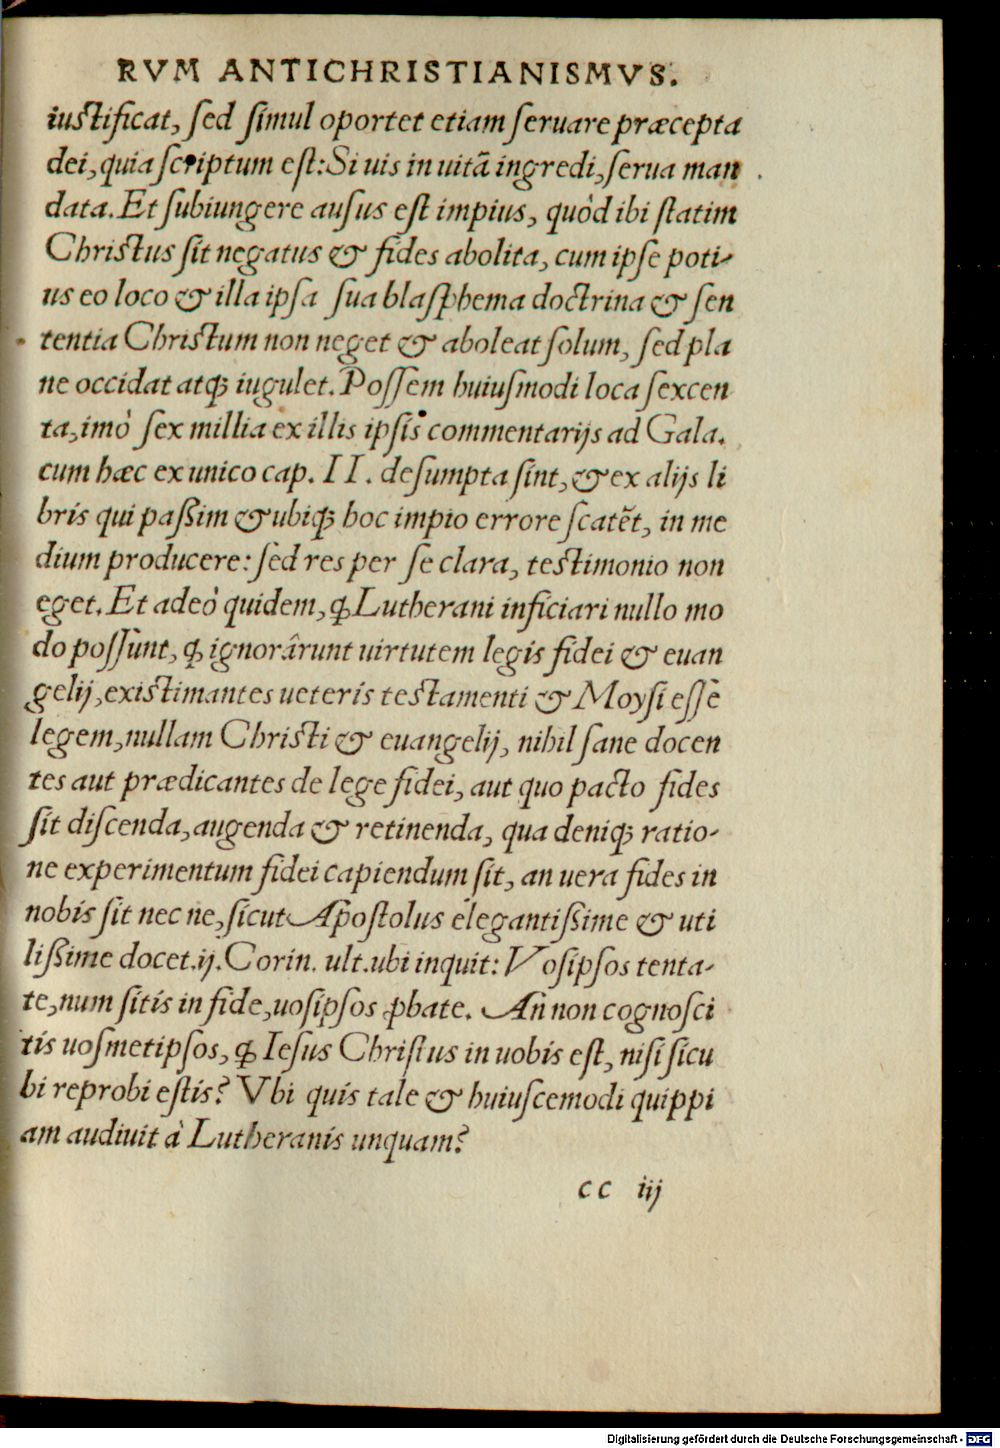 RVM ANTICHRISTIANISMVS.
iustificat, sed simul oportet etiam seruare præcepta
dei, quia scriptum est: Si uis in uitã ingredi, serua man
data. Et subiungere ausus est impius, quòd ibi statim
Christus sit negatus & fides abolita, cum ipse poti-
us eo loco & illa ipsa sua blasphema doctrina & sen
tentia Christum non neget & aboleat solum, sed pla
ne occidat atq; iugulet. Possem huiusmodi loca sexcen
ta, imò sex millia ex illis ipsis commentarijs ad Gala.
cum hæc ex unico cap. II. desumpta sint, & ex alijs li
bris qui paßim & ubiq; hoc impio errore scatẽt, in me
dium producere: sed res per se clara, testimonio non
eget. Et adeò quidem, ꝙ Lutherani inficiari nullo mo
do possunt, ꝙ ignorârunt uirtutem legis fidei & euan
gelij, existimantes ueteris testamenti & Moysi esse
legem, nullam Christi & euangelij, nihil sane docen
tes aut prædicantes de lege fidei, aut quo pacto fides
sit discenda, augenda & retinenda, qua deniq; ratio-
ne experimentum fidei capiendum sit, an uera fides in
nobis sit nec ne, sicut Apostolus elegantißime & uti
lißime docet. ij. Corin. ult. ubi inquit: Vosipsos tenta-
te, num sitis in fide, uosipsos ꝓbate. An non cognosci
tis uosmetipsos, ꝙ Iesus Christus in uobis est, nisi sicu
bi reprobi estis? Vbi quis tale & huiuscemodi quippi
am audiuit à Lutheranis unquam?
cc iij
Digitalisierung gefördert durch die Deutsche Forschungsgemeinschaft - DFG